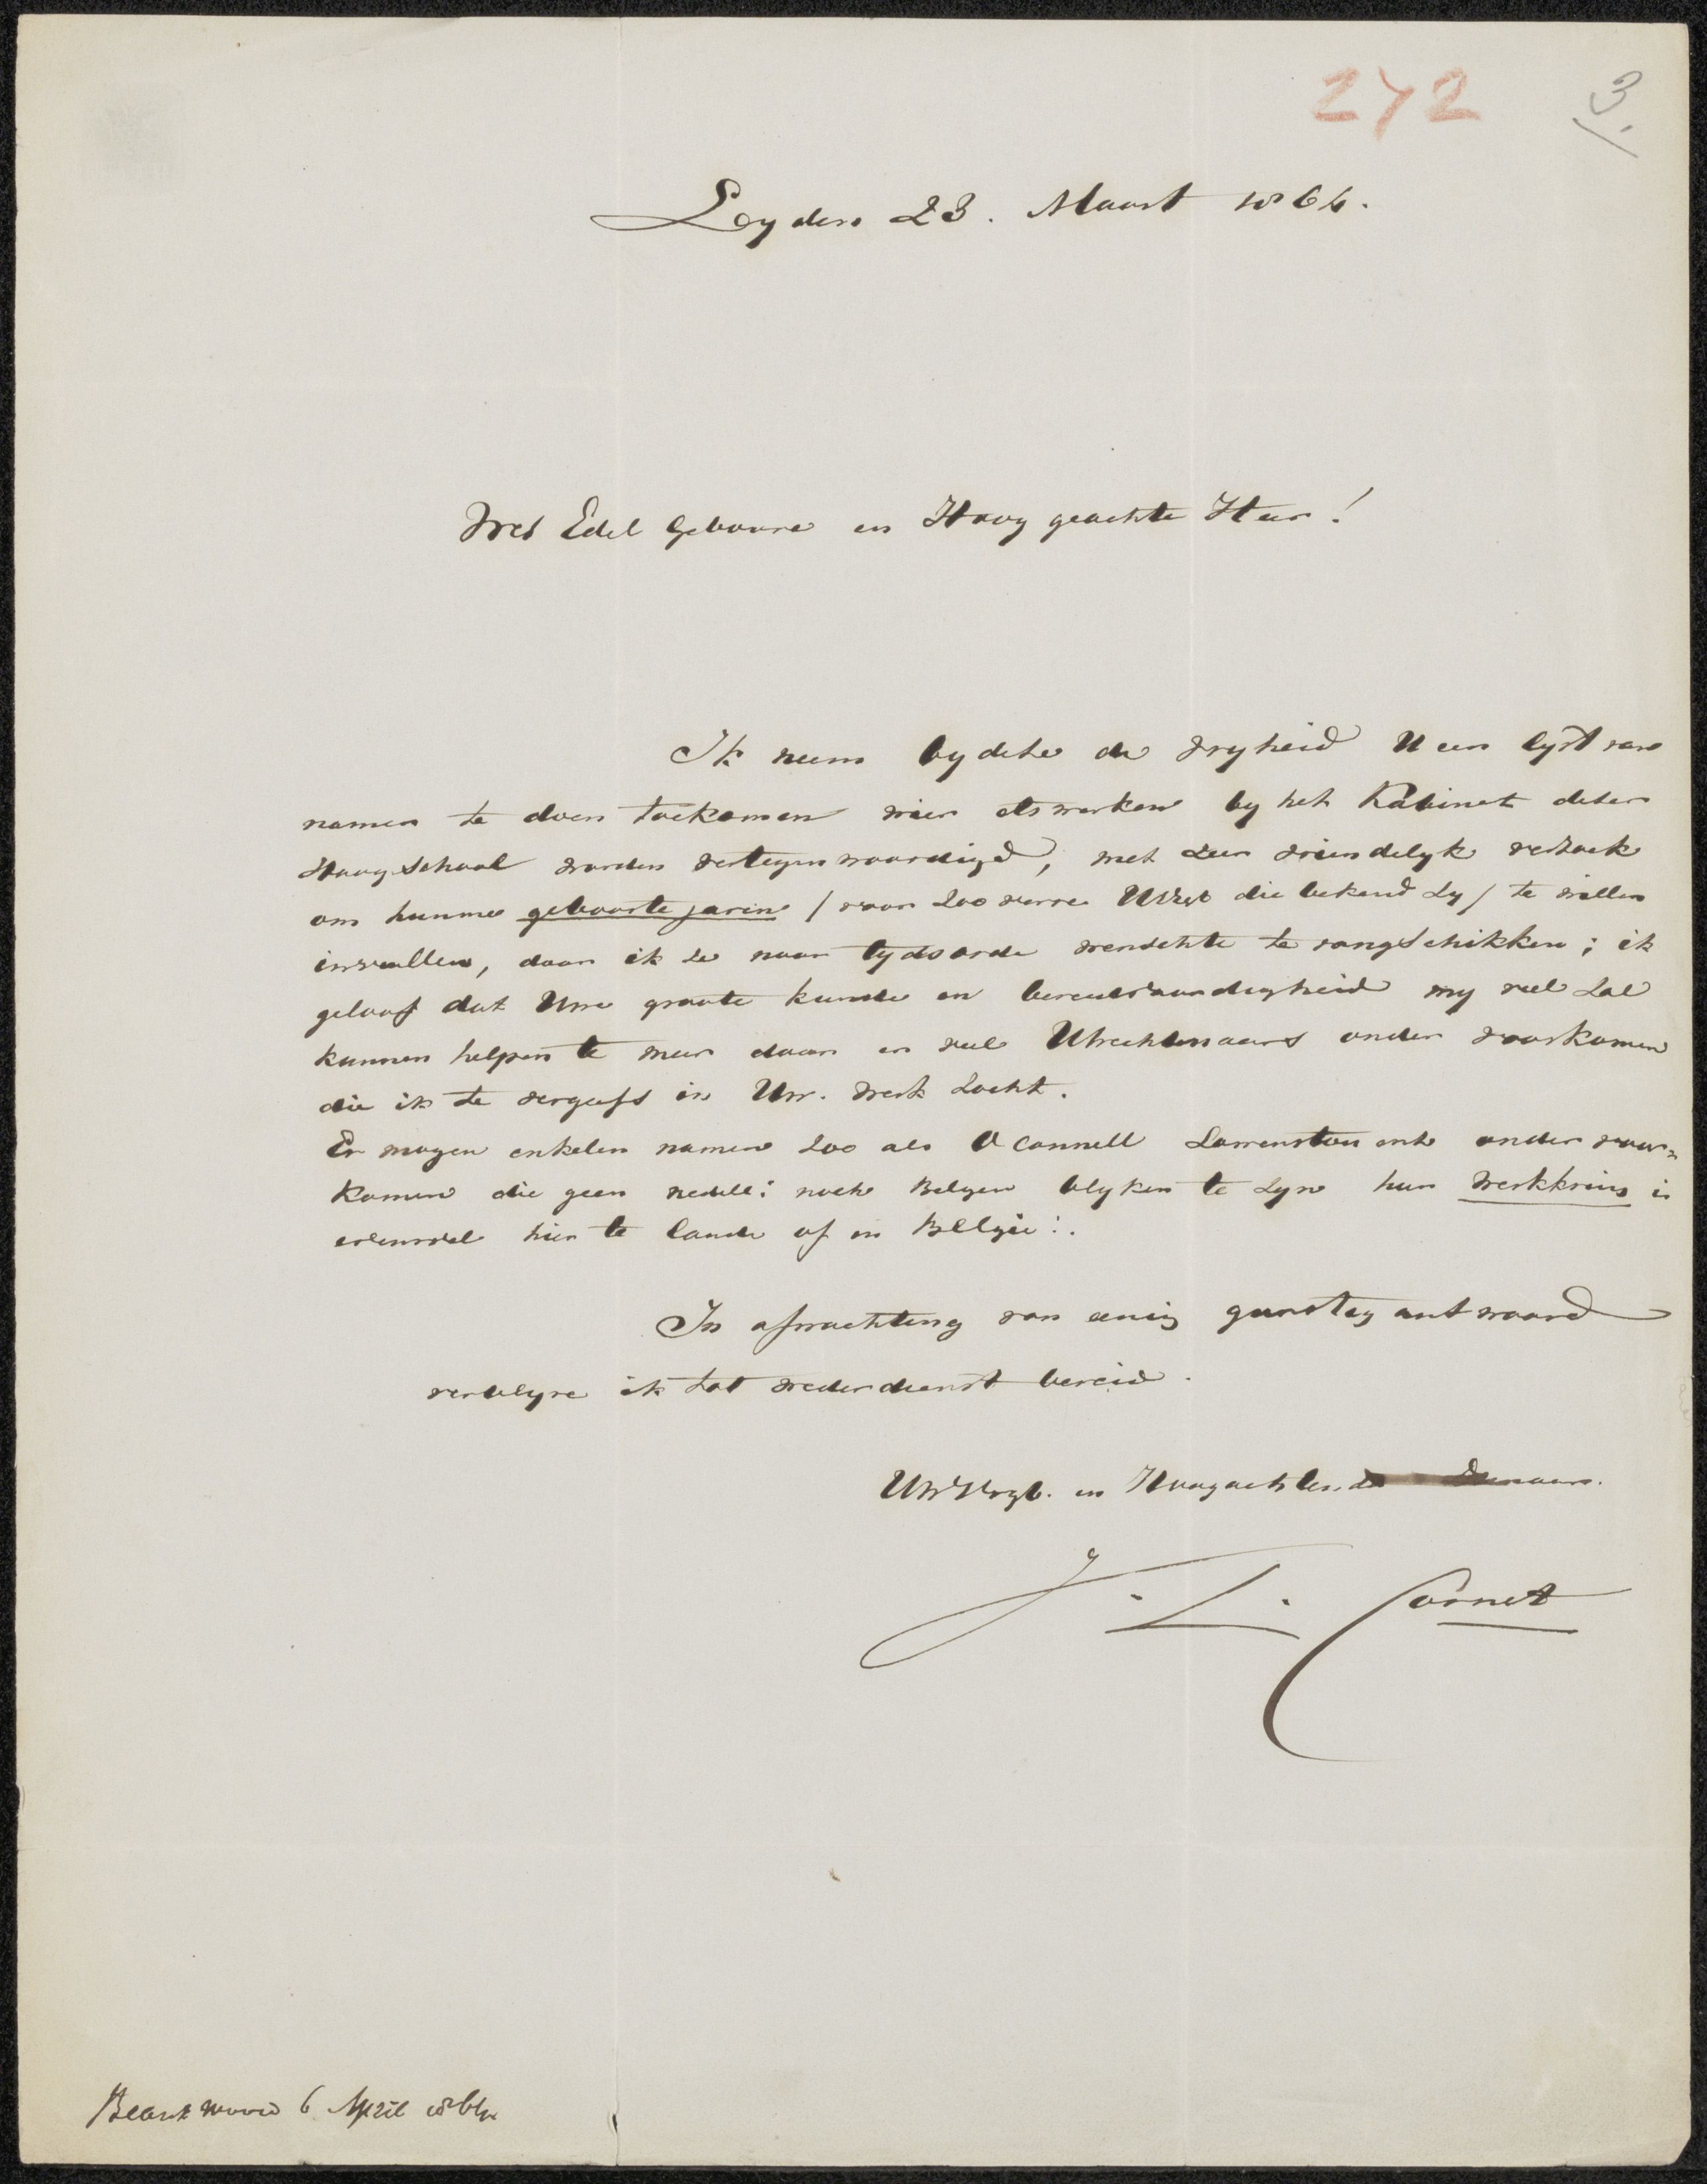 272
3.
Leyden 23. Maart 1864.
Wel Edel Geboore en Hoog geachte Heer!
Ik neem by deze de vryheid U een lyst van
namen te doen toekomen wier etswerken by het Kabinet dezer
Hoogschool worden vertegenwoordigd, met zeer vriendelyk verzoek
om hunne geboorte jaren / voor zoo verre UWEGb die bekend zy / te willen
invullen, daar ik ze naar tydsorde wenschte te rangschikken; ik
geloof dat Uwe groote kunde en bereidvaardigheid my veel zal
kunnen helpen te meer daar er veel Utrechtenaars onder voorkomen
die ik te vergeefs in Uw. werk zocht.
Er mogen enkelen namen zoo als O Connell enz onder voor=
komen die geen nederl: noch Belgen blyken te zyn hun werkkring is
evenwel hier te lande of in Belgie:.
In afwachting van eenig gunstig antwoord
verblyve ik tot wederdienst bereid.
en Hoogachtende Dienaar.
J. L. Cornet
Beantwoord 6 April 1864